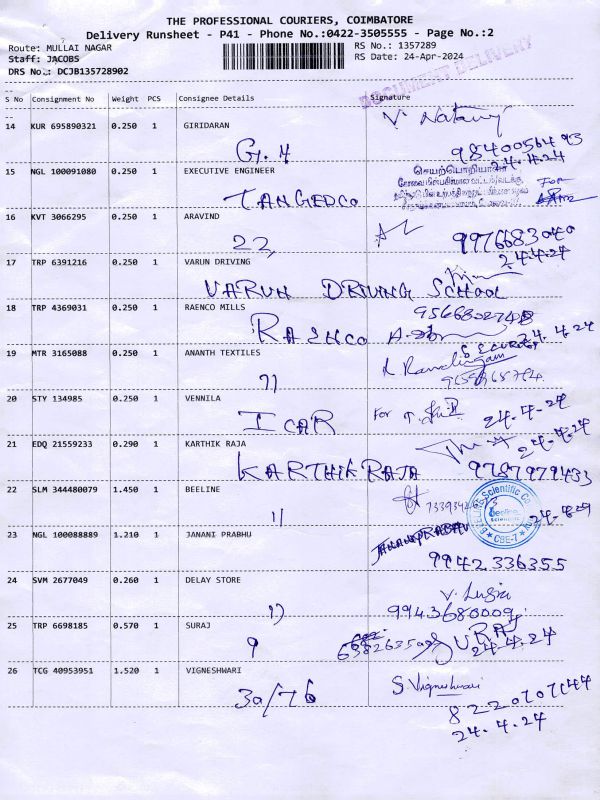 THE PROFESSIONAL COURIERS, COIMBATORE
Delivery Runsheet - P41 - Phone No.:0422-3505555 - Page No.:2
Route: MULLAI NAGAR
RS No.: 1357289
Staff: JACOBS
RS Date: 24-Apr-2024
DRS No.: DCJB135728902
DOCUMENT DELIVERY
S No Consignment No Weight PCS Consignee Details Signature
14 KUR 695890321 0.250 1 GIRIDARAN
G.H 9840056493
24.4.24
15 NGL 100091080 0.250 1 EXECUTIVE ENGINEER
TANGEDCO செயற்பொறியாளர் For
16 KVT 3066295 0.250 1 ARAVIND
22, 9976683040
24.4.24
17 TRP 6391216 0.250 1 VARUN DRIVING
VARUN DRIVING SCHOOL
18 TRP 4369031 0.250 1 RAENCO MILLS
9566802748
24.4.24
19 MTR 3165088 0.250 1 ANANTH TEXTILES
R Ramalingam
20 STY 134985 0.250 1 VENNILA
ICAR For 24-4-24
21 EDQ 21559233 0.290 1 KARTHIK RAJA
24-4-24
KARTHIK RAJA 9787979433
22 SLM 344480079 1.450 1 BEELINE
11 Beeline Scientific CBE-7
23 NGL 100088889 1.210 1 JANANI PRABHU
9942336355
24 SVM 2677049 0.260 1 DELAY STORE
11 9943680009
25 TRP 6698185 0.570 1 SURAJ
9 SURAJ
24.4.24
26 TCG 40953951 1.520 1 VIGNESHWARI
30/76 S. Vigneshwari
8220707644
24.4.24